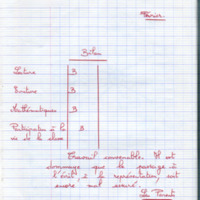 Février.
Bilan
Lecture B
Ecriture B
Mathématiques B
Participation à la B
vie de la classe
Travail convenable. Il est
dommage que le passage à
l'écrit, à la représentation, soit
encore mal assuré.
Les Parents